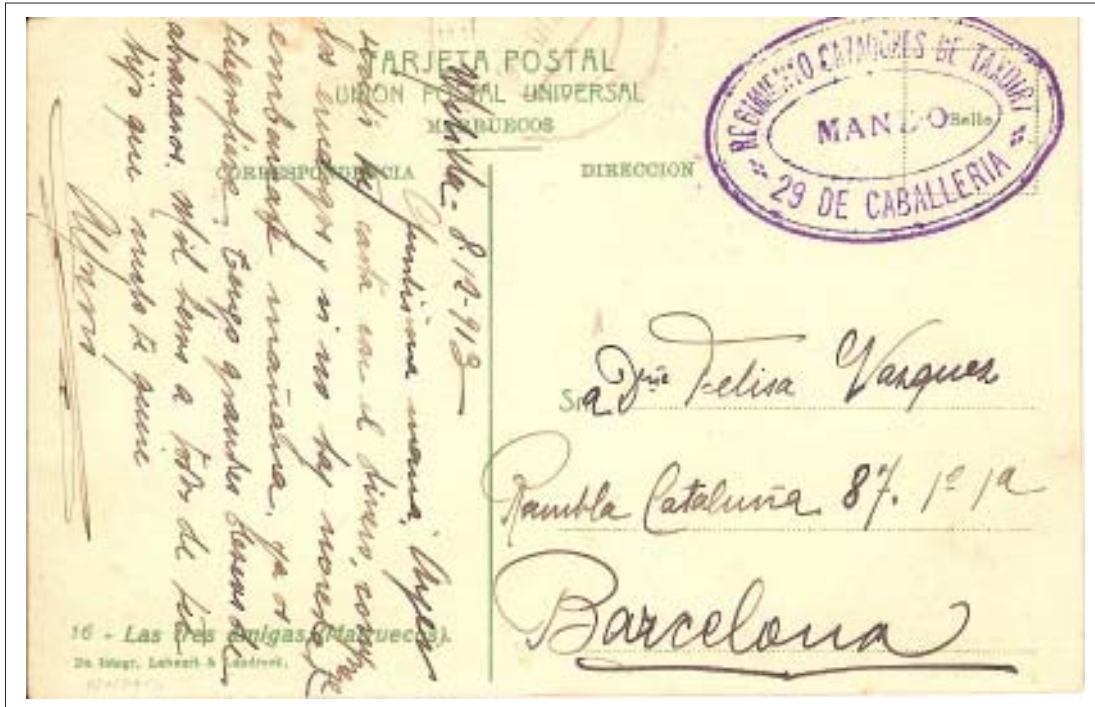 TARJETA POSTAL
UNION POSTAL UNIVERSAL
MARRUECOS
CORRESPONDENCIA
DIRECCION
REGIMIENTO CAZADORES DE TAXDIRT
29 DE CABALLERIA
MANDO
Sello
Melilla - 8-12-913
mamá, Ayer
recibí tu carta con el dinero, compré
los encargos y si no hay
embarcaré mañana, ya os
telegrafiaré. Tengo grandes deseos de
abrazaros. Mil besos a todos de tu
hijo que mucho te quiere
Sra Dña Felisa Vazquez
Rambla Cataluña 87. 1º 1ª
Barcelona
16 - Las tres amigas (Marruecos).
De fotogr. Lehnert & Landrock.